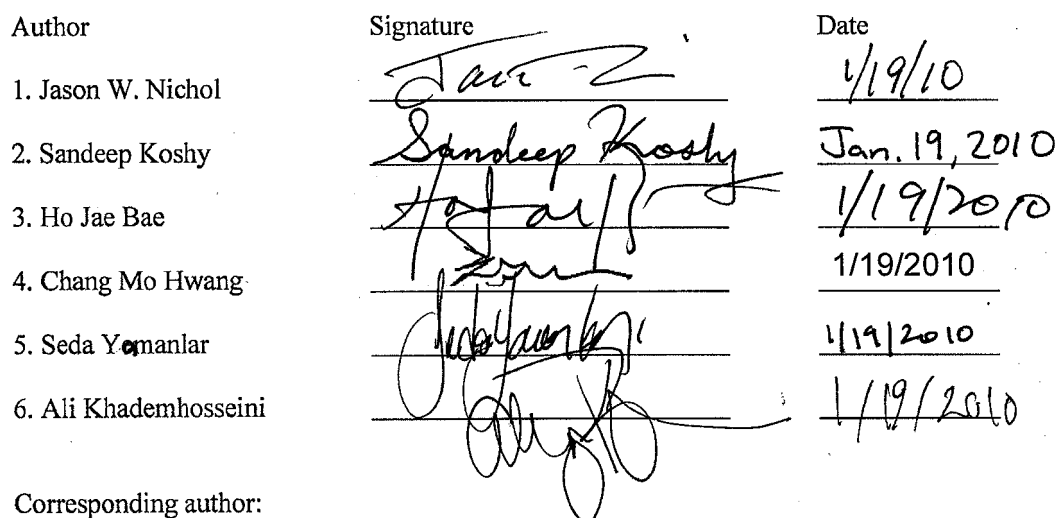 Author Signature Date
1. Jason W. Nichol 1/19/10
2. Sandeep Koshy Sandeep Koshy Jan. 19, 2010
3. Ho Jae Bae 1/19/2010
4. Chang Mo Hwang 1/19/2010
5. Seda Yamanlar 1/19/2010
6. Ali Khademhosseini 1/19/2010
Corresponding author: